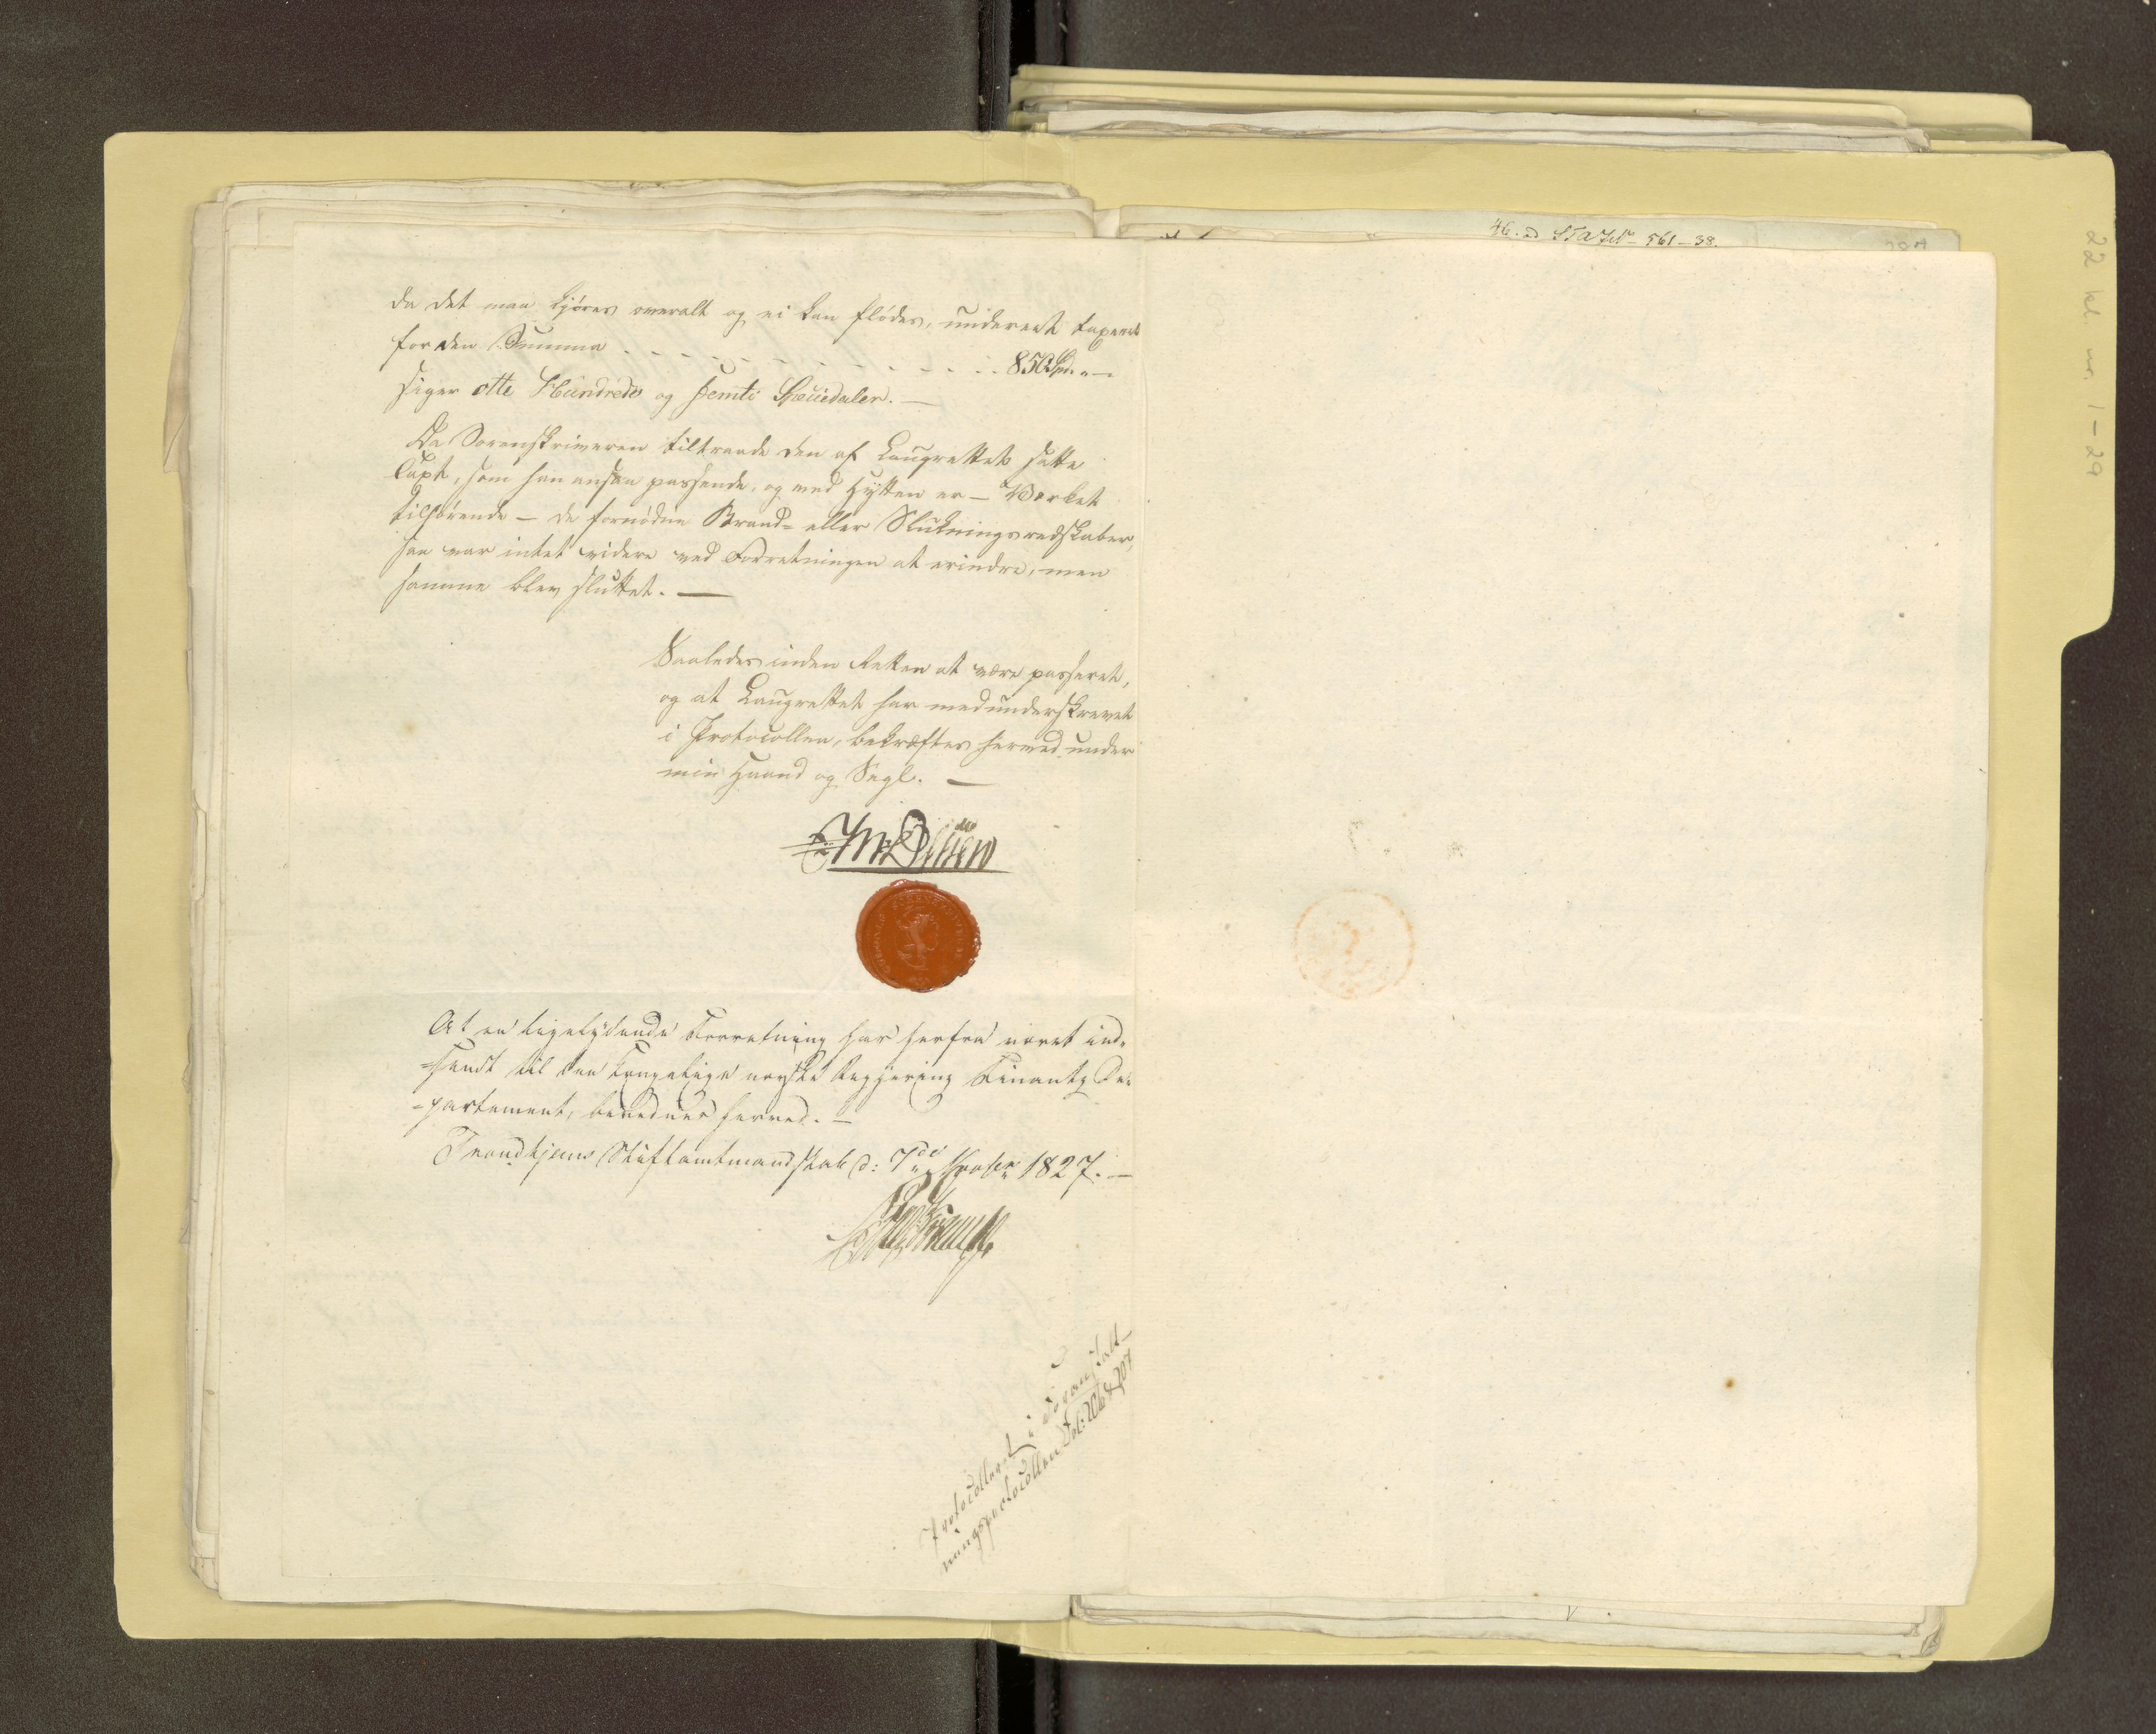 46. ad 561-38.
22 kl. nr. 1-29
da det maa kjøres overalt og ei kan flødes, underert taxeret
for den Summa . . . . . . . . . . . 850 Spd. "—
siger otte Hundrede og femti Speciedaler. —
Da Sorenskriveren tiltraadte den af Laugrettet satte
Taxt, som han ansaa passende, og med Hytten er — Værket
tilhørende — de fornødne Brand= eller Slukningsredskaber,
saa var intet videre ved Forretningen at erindre, men
samme blev sluttet. —
Saaledes inden Retten at være passeret,
og at Laugrettet har medunderskrevet
i Protocollen, bekræftes herved under
min Haand og Segl. —
At en ligelydende Forretning har herfra været ind-
=sendt til den Kongelige norske Regjerings Finants De-
=partement, bevidnes herved. —
Trondhjems Stiftamtmandskab d: 7de 1827. —
Protocolleret i Brandtaxt-
ningsprotocollen Fol: 206 & 207